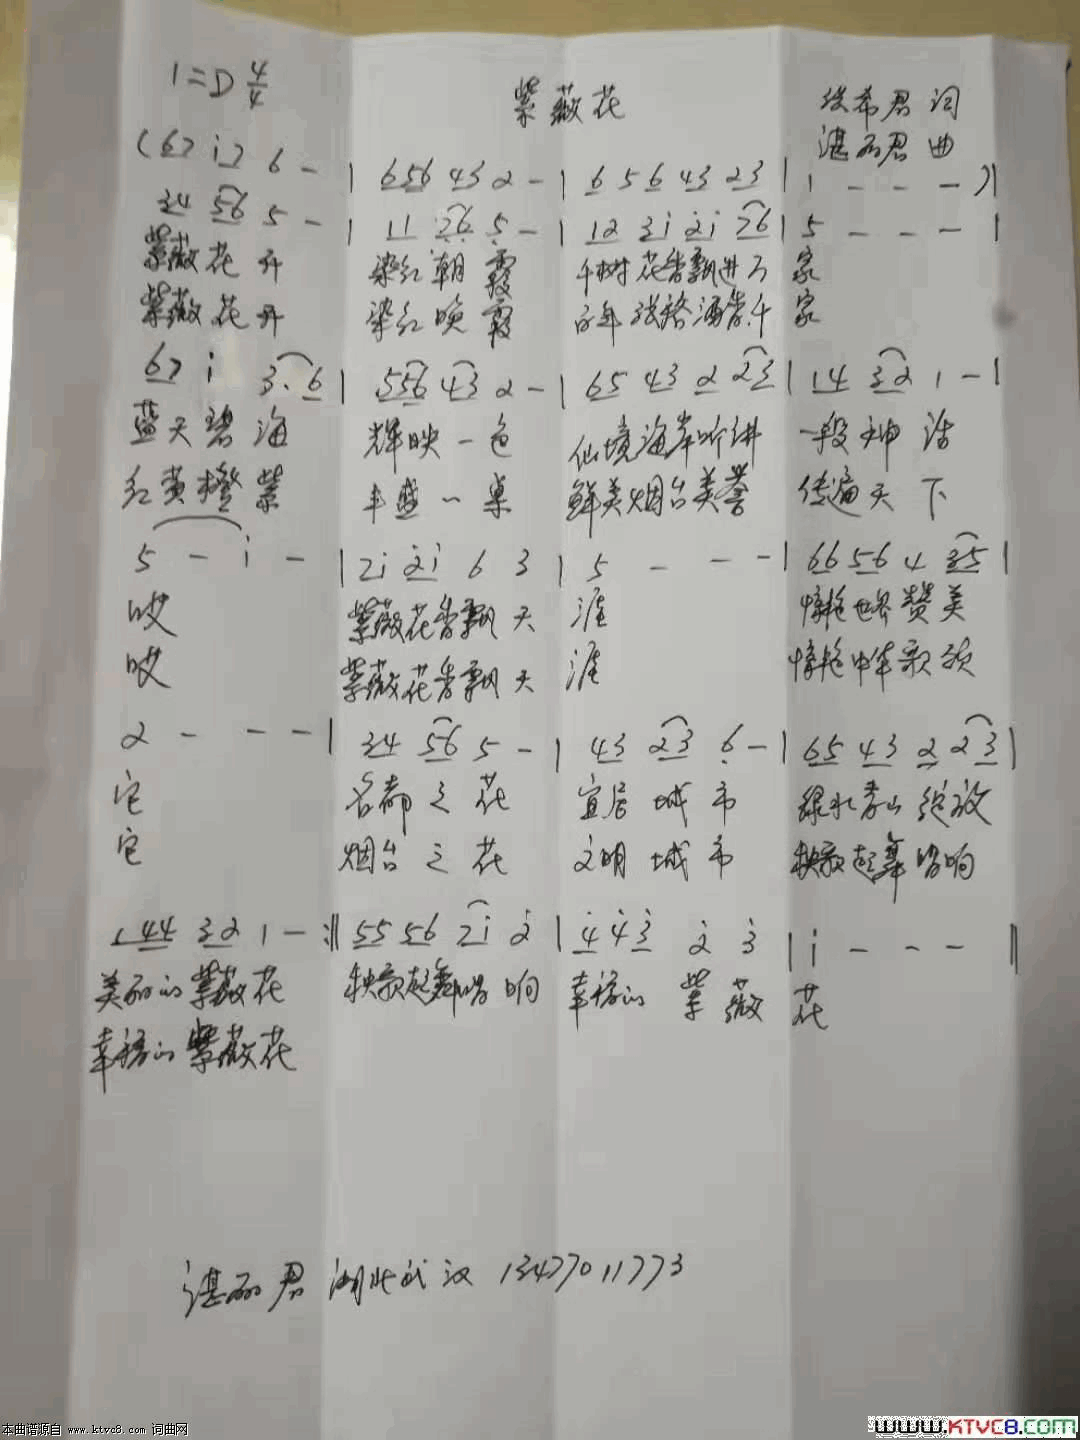 1=D 4/4 紫薇花 希君 词
湛丽君 曲
(67 i7 6 - | 656 43 2 - | 6 56 43 23 | 1 - - - )|
34 56 5 - | 11 26 5 - | 12 3i 2i 76 | 5 - - - |
紫薇花开 染红朝霞 千树花香飘进万 家
紫薇花开 染红晚霞 百年 洒香千 家
67 i 3.6 | 556 43 2 - | 65 43 2 23 | 14 32 1 - |
蓝天碧海 辉映一色 仙境海岸听讲 一段神话
红黄橙紫 丰盛一桌 鲜美烟台美誉 传遍天下
5 - i - | 2i 2i 6 3 | 5 - - - | 66 56 4 35 |
哎 紫薇花香飘天 涯 世界赞美
哎 紫薇花香飘天 涯 中华歌颂
2 - - - | 34 56 5 - | 43 23 6 - | 65 43 2 23 |
它 名都之花 宜居城市 绿水青山绽放
它 烟台之花 文明城市 秧歌起舞唱响
1 44 32 1 - :‖ 55 56 2i 2 | 4 43 2 3 | i - - - ‖
美丽的紫薇花 秧歌起舞唱响 幸福的 紫薇 花
幸福的紫薇花
湛丽君 湖北武汉 13477011773
本曲谱源自 www.ktvc8.com 词曲网
www.KTVC8.com